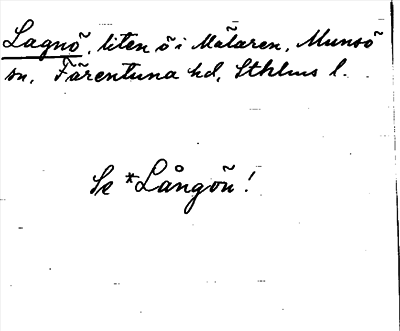 Lagnö, liten ö i Mälaren, Munsö
sn, Färentuna hd, Sthlms l.
Se *Långön!